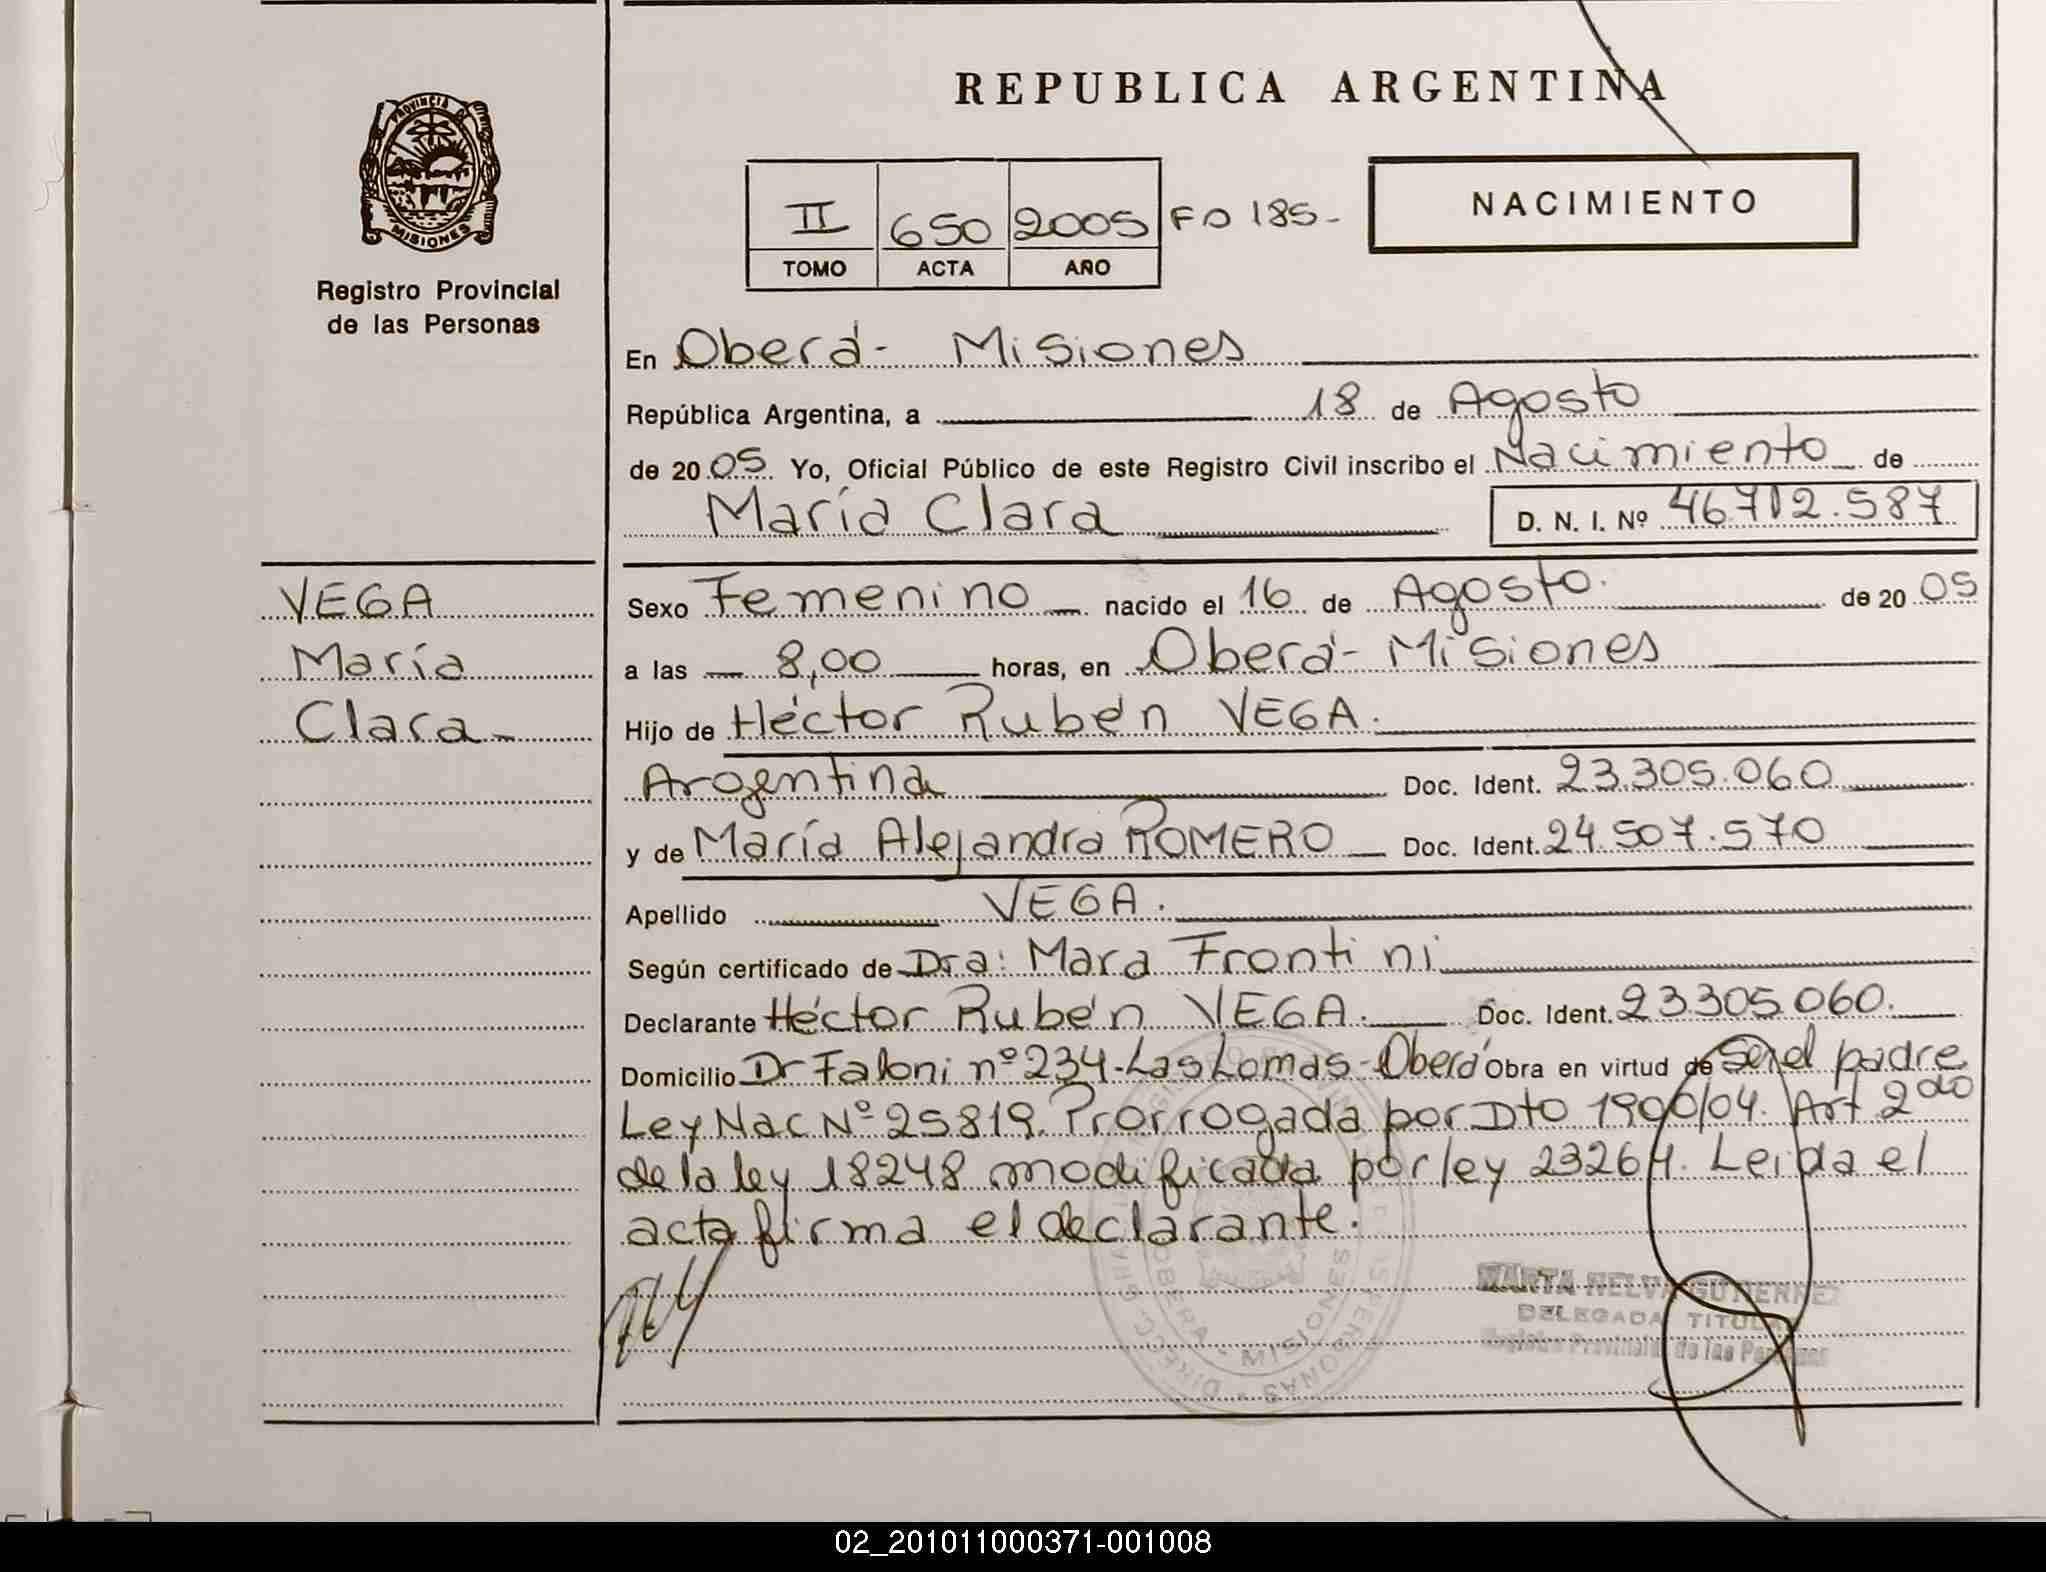 PROVINCIA DE
MISIONES
Registro Provincial
de las Personas
VEGA
María
Clara
REPUBLICA ARGENTINA
II 650 2005 Fo 185-
TOMO ACTA AÑO
NACIMIENTO
En Oberá- Misiones
República Argentina, a 18 de Agosto
de 2005. Yo, Oficial Público de este Registro Civil inscribo el Nacimiento de
María Clara D. N. I. Nº 46712.587
Sexo Femenino nacido el 16 de Agosto. de 2005
a las 8,00 horas, en Oberá- Misiones
Hijo de Héctor Rubén VEGA.
Argentina Doc. Ident. 23.305.060
y de María Alejandra ROMERO Doc. Ident. 24.507.570
Apellido VEGA.
Según certificado de Dra: Mara Frontini
Declarante Héctor Rubén VEGA. Doc. Ident. 23305060.
Domicilio Dr Faloni nº 234-Las Lomas-Oberá Obra en virtud de Ser el padre
Ley Nac Nº 25819. Prorrogada por Dto 1900/04. Art 2do
de la ley 18248 modificada por ley 23264. Leida el
acta firma el declarante.
MARTA NELVA GUTIERREZ
DELEGADA TITULAR
Registro Provincial de las Personas
OBERA - MISIONES
02_201011000371-001008